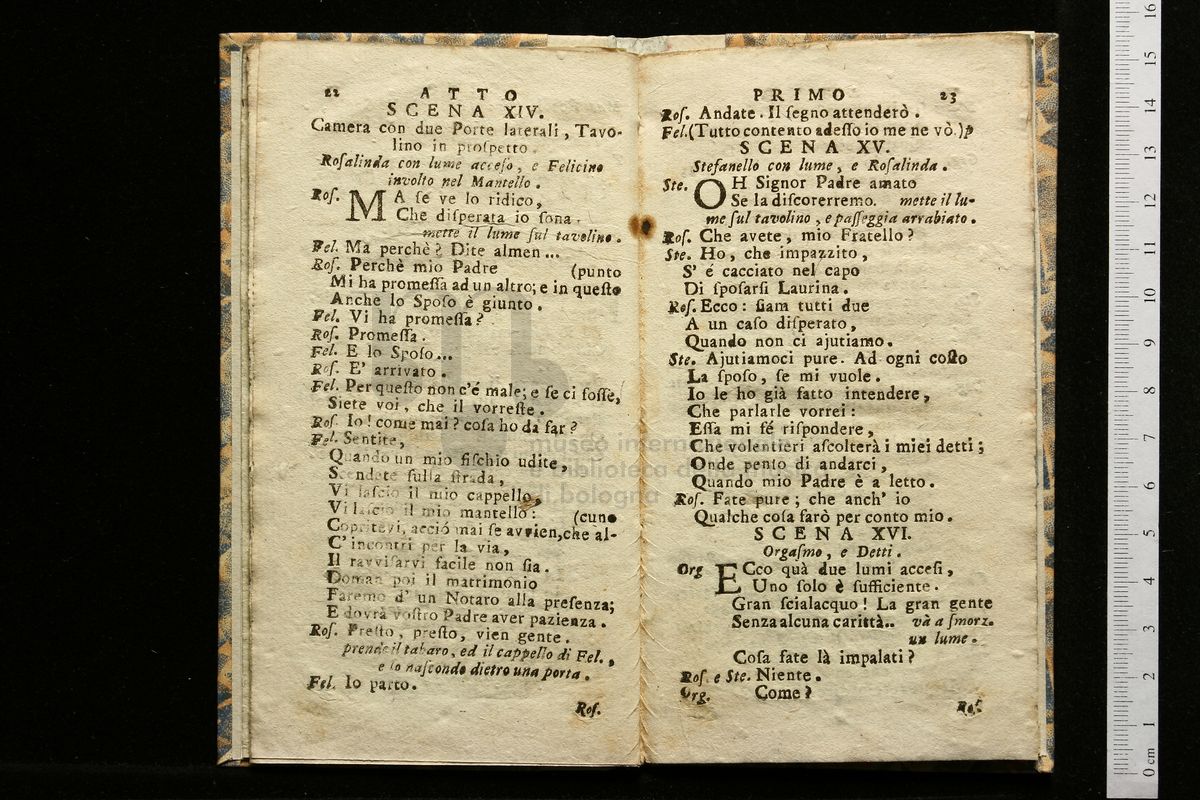 22 ATTO
SCENA XIV.
Camera con due Porte laterali, Tavo-
lino in proſpetto.
Roſalinda con lume acceſo, e Felicino
involto nel Mantello.
Roſ. MA ſe ve lo ridico,
Che diſperata io ſona.
mette il lume ſul tavolino.
Fel. Ma perchè? Dite almen...
Roſ. Perchè mio Padre (punto
Mi ha promeſſa ad un altro; e in queſto
Anche lo Spoſo è giunto.
Fel. Vi ha promeſſa?
Roſ. Promeſſa.
Fel. E lo Spoſo...
Roſ. E' arrivato.
Fel. Per queſto non c'é male; e ſe ci foſſe,
Siete voi, che il vorreſte.
Roſ. Io! come mai? coſa ho da far?
Fel. Sentite,
Quando un mio fiſchio udite,
Scendete ſulla ſtrada,
Vi laſcio il mio cappello,
Vi laſcio il mio mantello: (cuno
Copritevi, acciò mai ſe avvien, che al-
C'incontri per la via,
Il ravviſarvi facile non ſia.
Doman poi il matrimonio
Faremo d' un Notaro alla preſenza;
E dovrà voſtro Padre aver pazienza.
Roſ. Preſto, preſto, vien gente.
prende il tabaro, ed il cappello di Fel.,
e lo naſconde dietro una porta.
Fel. Io parto.
Roſ.
PRIMO 23
Roſ. Andate. Il ſegno attenderò.
Fel. (Tutto contento adeſſo io me ne vò.) p
SCENA XV.
Stefanello con lume, e Roſalinda.
Ste. OH Signor Padre amato
Se la diſcorerremo. mette il lu-
me ſul tavolino, e paſſeggia arrabiato.
Roſ. Che avete, mio Fratello?
Ste. Ho, che impazzito,
S' é cacciato nel capo
Di ſpoſarſi Laurina.
Roſ. Ecco: ſiam tutti due
A un caſo diſperato,
Quando non ci ajutiamo.
Ste. Ajutiamoci pure. Ad ogni coſto
La ſpoſo, ſe mi vuole.
Io le ho già fatto intendere,
Che parlarle vorrei:
Eſſa mi fé riſpondere,
Che volentieri aſcolterà i miei detti;
Onde penſo di andarci,
Quando mio Padre è a letto.
Roſ. Fate pure; che anch' io
Qualche coſa farò per conto mio.
SCENA XVI.
Orgaſmo, e Detti.
Org ECco quà due lumi acceſi,
Uno ſolo è ſufficiente.
Gran ſcialacquo! La gran gente
Senza alcuna carittà.. và a ſmorz.
un lume.
Coſa fate là impalati?
Roſ. e Ste. Niente.
Org. Come?
Roſ.
museo internazionale
e biblioteca della musica
di bologna